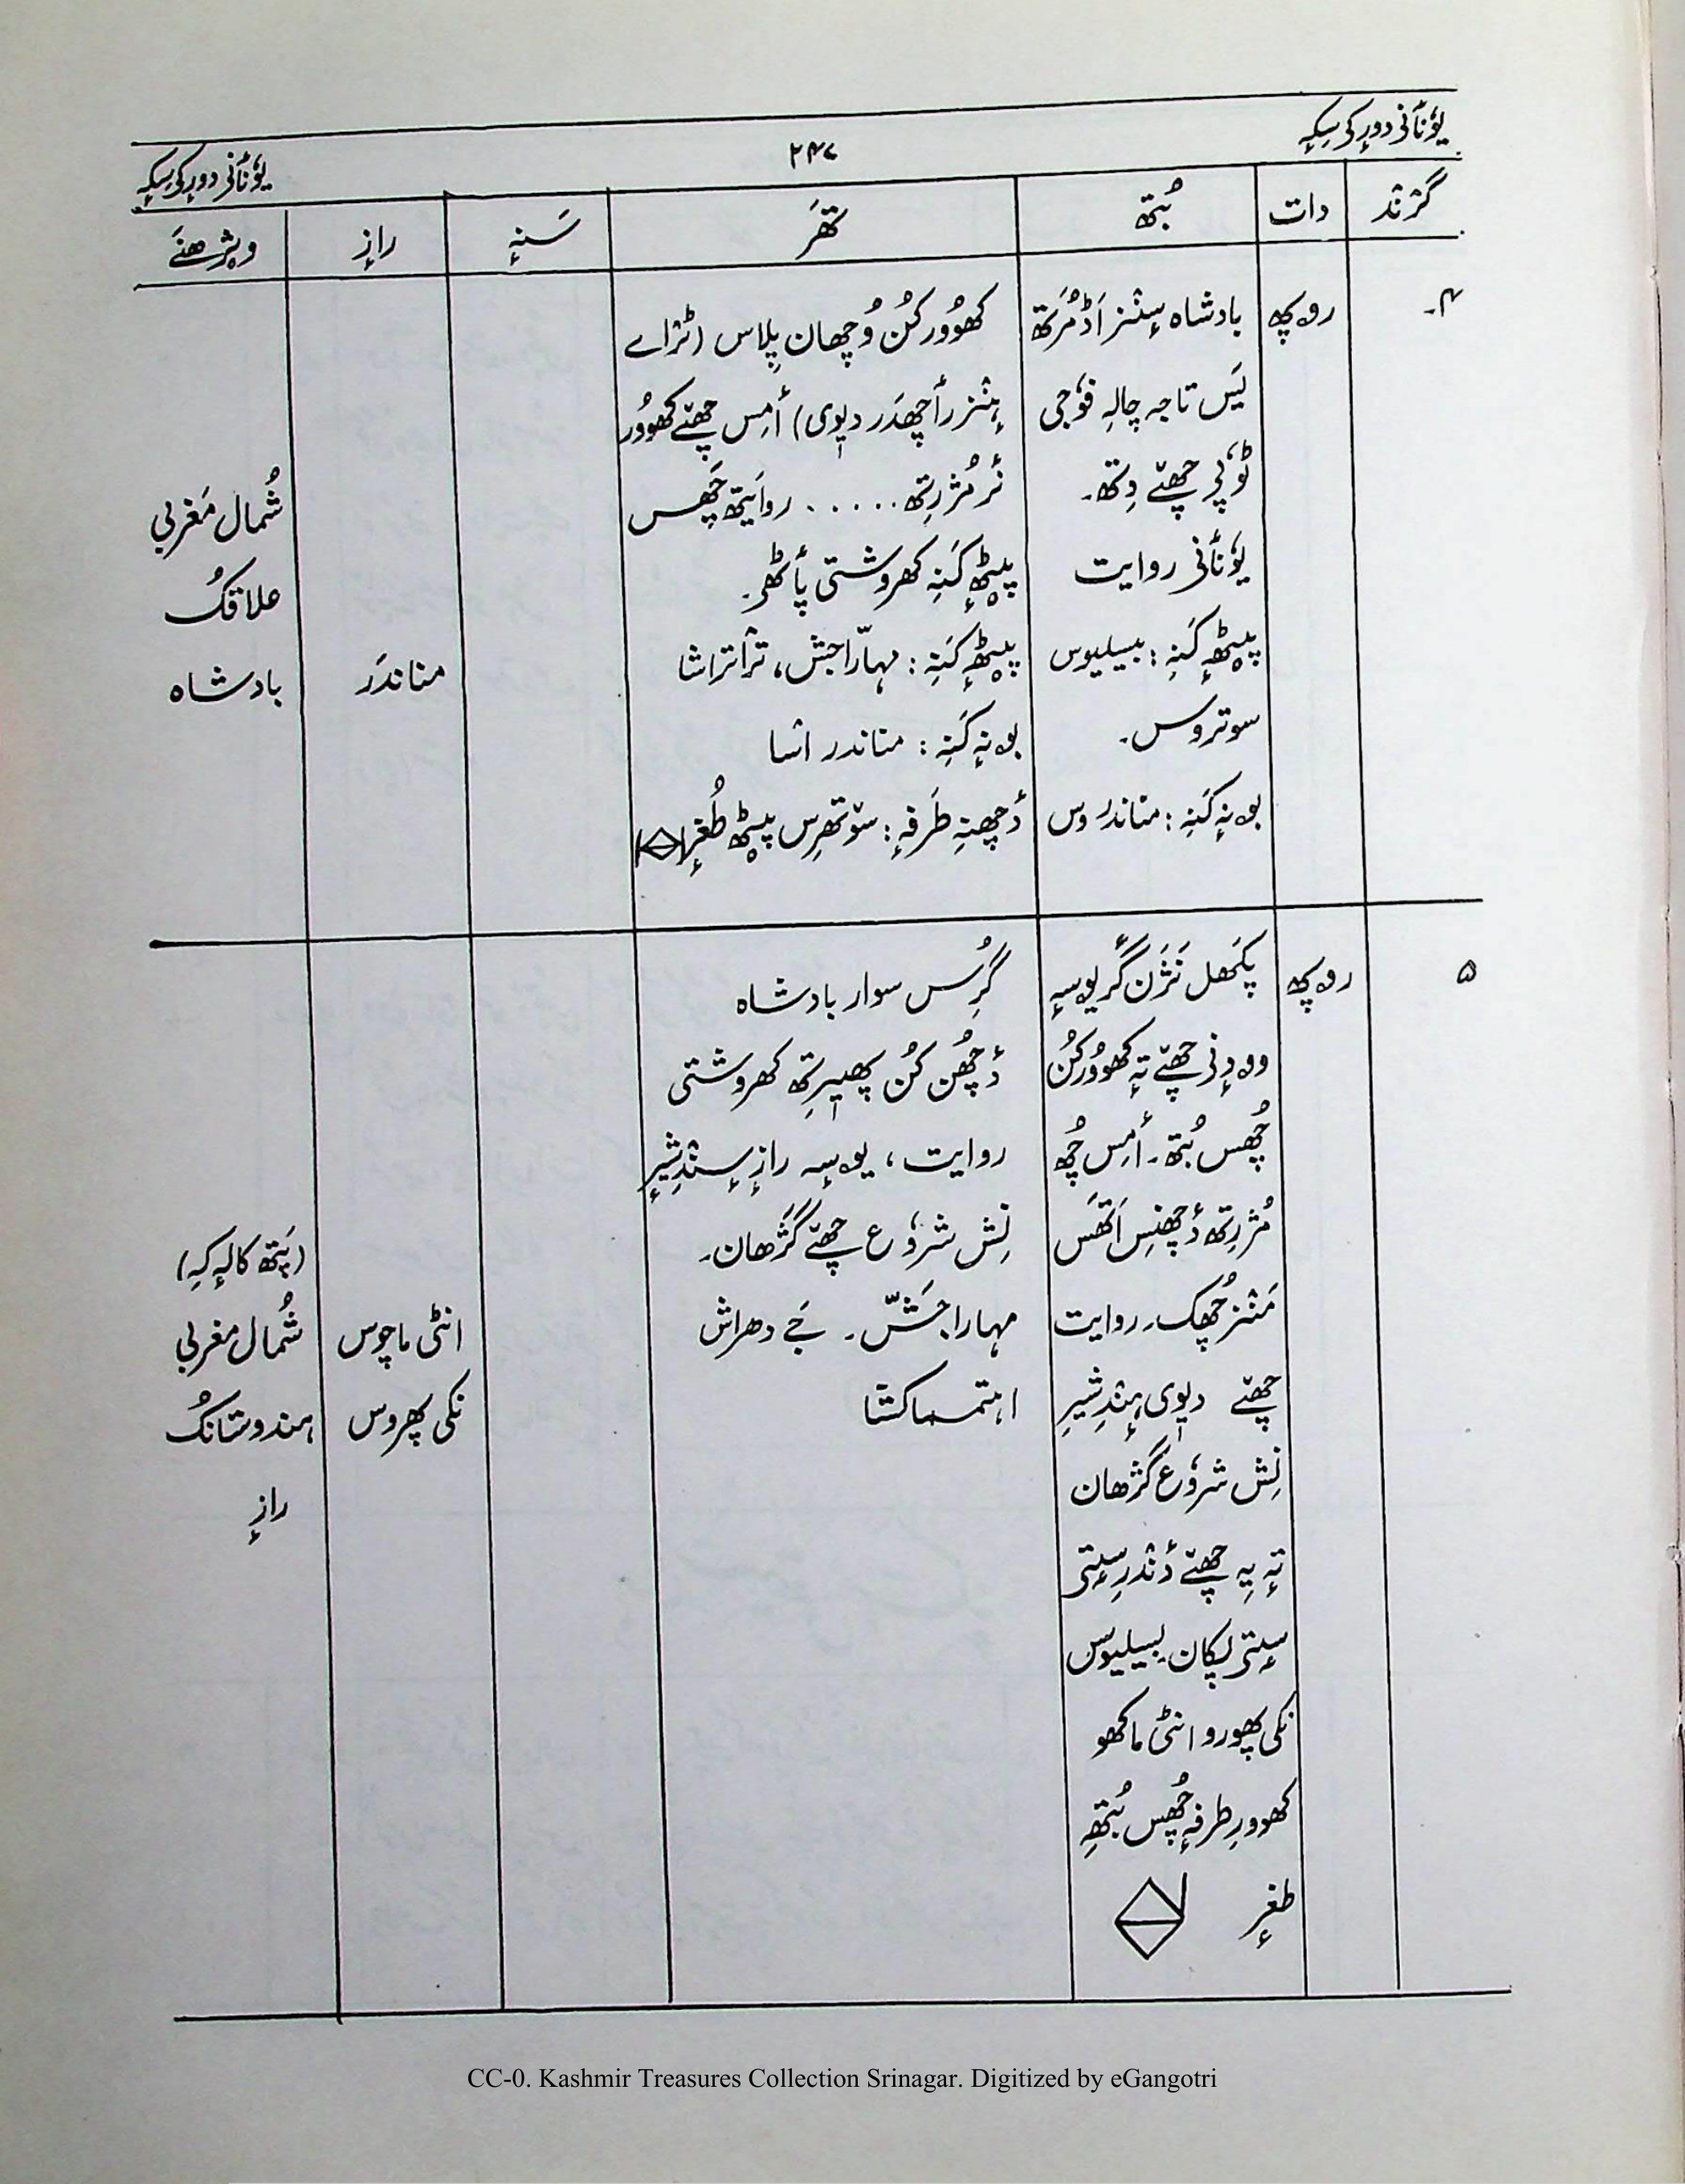 یوٗنٲنی دورٕکی سِکہٕ
۲۴۷
یوٗنٲنی دورٕکی سِکہٕ
گرٛنٛد
دات
بُتھ
تھَر
سَنہٕ
رازٕ
ویژھنَے
۴۔
روپھ
بادشاہ سٕنٛز اَڈ مُرَتھ
یَس تاجہ چالہِ فوٗجی
ٹوٗپی چھےٚ دِتھ۔
یوٗنٲنی روایت
پیٚٹھٕ کَنہِ : بیسلیوس
سوتروس۔
بۄنہٕ کَنہِ : مناندروس
کھوٗوُر کُن وُچھان پلاس (ٹرٛاے
ہٕنٛز رٲچھدَر دیوی) أمِس چھےٚ کھوٗوُر
نٔر مُژرِتھ ..... روایتھ چھَس
پیٚٹھٕ کَنہِ کھروشتی پٲٹھۍ۔
پیٚٹھٕ کَنہِ : مہاراجش، تراتراشا
بۄنہٕ کَنہِ : مناندر اشا
دٔچھنہِ طَرفہٕ : سۆتھرِس پیٚٹھ طُغرٕ
مناندَر
شُمال مَغربی
علاقُک
بادشاہ
۵
روپھ
پَکھل نَژَن گٔر یۄسہٕ
وۄدٕنی چھےٚ تہٕ کھوٗوُر کُن
چھُس بُتھ۔ أمِس چھُ
مُژرِتھ دٔچھنِس اَتھَس
مَنٛز چھُک۔ روایت
چھےٚ دیوی ہٕنٛدِ شیرِ
نِش شروٗع گژھان
تہٕ یہِ چھےٚ دٔنٛدرِ سٕتی
سٕتی پکان۔ بیسلیوس
نکی پھورو انٹی ماکھو
کھوورِ طرفہٕ چھُس بُتھِ
طغرٕ
گُرِس سوار بادشاہ
دٔچھُن کُن پھیرِتھ کھروشتی
روایت، یۄسہٕ رازٕ سٕنٛدِ شیرٕ
نِش شروٗع چھےٚ گَژھان۔
مہاراجَشّ۔ جَے دھراش
انٹی ماچوس
نکی پھروس
(پَتھ کالہٕ کہِ)
شُمال مغربی
ہندوستانُک
رازٕ
CC-0. Kashmir Treasures Collection Srinagar. Digitized by eGangotri